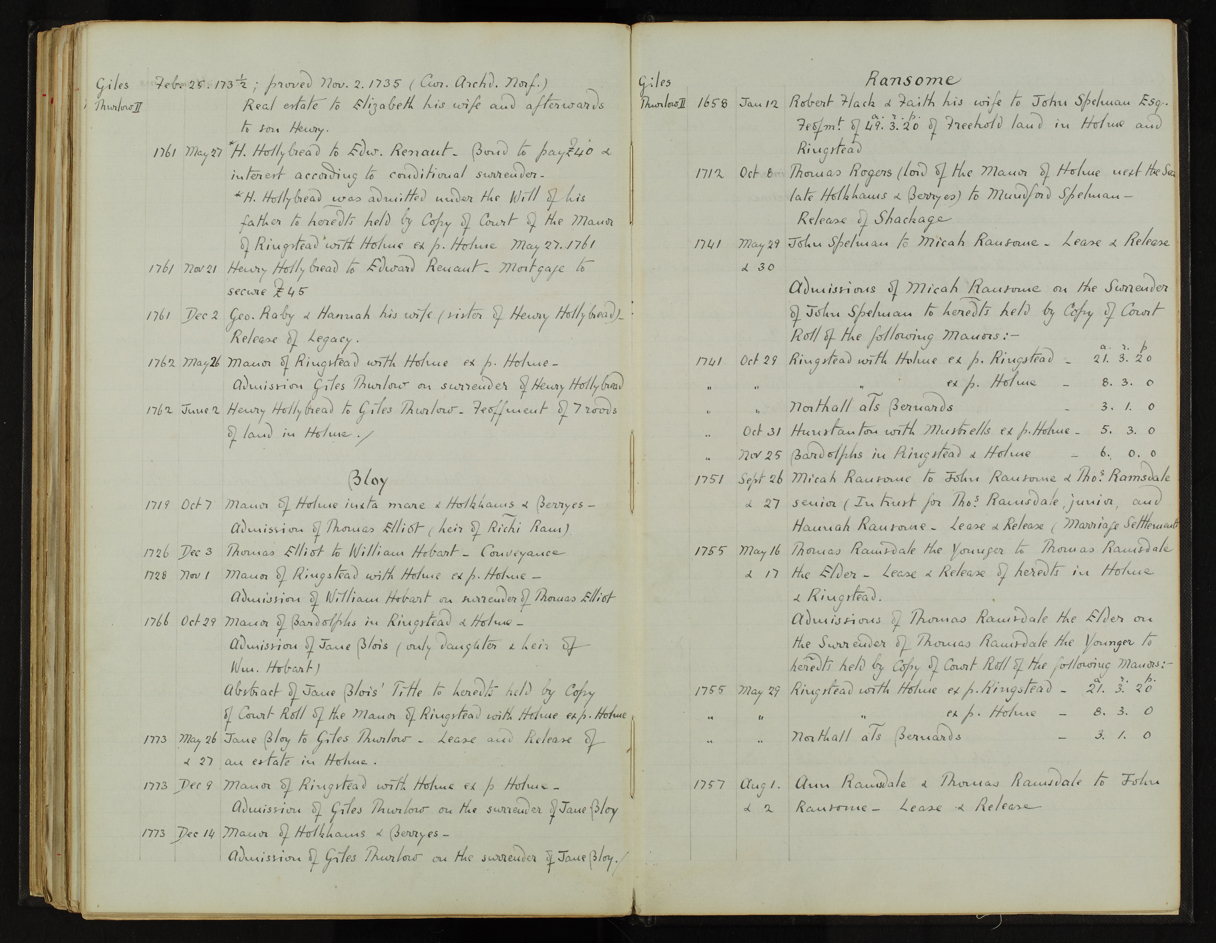 Giles Febr 25. 173½; proved Nov. 2. 1735 (Cur. Archd. Norf.)
Thurlow II Real estate to Elizabeth his wife and afterwards
to son Henry.
1761 May 27 *H. Hollybread to Edw. Renaut - Bond to pay £40 &
interest according to conditional surrender -
*H. Hollybread was admitted under the Will of his
father to heredts held by Copy of Court of the Manor
of Ringstead with Holme ex p. Holme May 27. 1761
1761 Nov 21 Henry Hollybread to Edward Renaut - Mortgage to
secure £45
1761 Dec 2 Geo. Raby & Hannah his wife (sister of Henry Hollybread) -
Release of Legacy.
1762 May 26 Manor of Ringstead with Holme ex p. Holme -
Admission Giles Thurlow on surrender of Henry Hollybread
1762 June 2 Henry Hollybread to Giles Thurlow - Feoffment of 7 roods
of land in Holme ./
Bloy
1719 Oct 7 Manor of Holme iuxta mare & Holkhams & Berryes -
Admission of Thomas Elliot (heir of Richi Ram)
1726 Dec 3 Thomas Elliot to William Hobart - Conveyance
1728 Nov 1 Manor of Ringstead with Holme ex p. Holme -
Admission of William Hobart on surrender of Thomas Elliot
1766 Oct 29 Manor of Bardolphs in Ringstead & Holme -
Admission of Jane Blois (only daughter & heir of
Wm. Hobart)
Abstract of Jane Blois' Title to heredts held by Copy
of Court Roll of the Manor of Ringstead with Holme ex p. Holme
1773 May 26 Jane Bloy to Giles Thurlow - Lease and Release of
& 27 an estate in Holme.
1773 Dec 9 Manor of Ringstead with Holme ex p Holme -
Admission of Giles Thurlow on the surrender of Jane Bloy
1773 Dec 14 Manor of Holkhams & Berryes -
Admission of Giles Thurlow on the surrender of Jane Bloy. /
Giles Ransome
Thurlow II 1658 Jan 12 Robert Flack & Faith his wife to John Spelman Esq.
Feofmt. of 49.a 3.r 20p of Freehold land in Holme and
Ringstead
1712 Oct 8 Thomas Rogers (lord of the Manor of Holme next the Sea
late Holkhams & Berryes) to Mundford Spelman -
Release of Shackage
1741 May 29 John Spelman to Micah Ransome - Lease & Release
& 30
Admissions of Micah Ransome on the Surrender
of John Spelman to heredts held by Copy of Court
Roll of the following Manors:-
a. r. p
1741 Oct 29 Ringstead with Holme ex p. Ringstead - 21. 3. 20
" " " ex p. Holme - 8. 3. 0
" " Northall als Bernards - 3. 1. 0
" Oct 31 Hunstanton with Mustrells ex p. Holme - 5. 3. 0
" Nov 25 Bardolphs in Ringstead & Holme - 6. 0. 0
1751 Sept 26 Micah Ransome to John Ransome & Thos. Ramsdale
& 27 senior (In trust for Thos. Ramsdale, junior, and
Hannah Ransome - Lease & Release (Marriage Settlement
1755 May 16 Thomas Ramsdale the Younger to Thomas Ramsdale
& 17 the Elder - Lease & Release of heredts in Holme
& Ringstead.
Admissions of Thomas Ramsdale the Elder on
the Surrender of Thomas Ramsdale the Younger to
heredts held by Copy of Court Roll of the following Manors:-
a. r. p.
1755 May 29 Ringstead with Holme ex p. Ringstead - 21. 3. 20
" " " ex p. Holme - 8. 3. 0
" " Northall als Bernards - 3. 1. 0
1757 Aug 1. Ann Ramsdale & Thomas Ramsdale to John
& 2 Ransome - Lease & Release